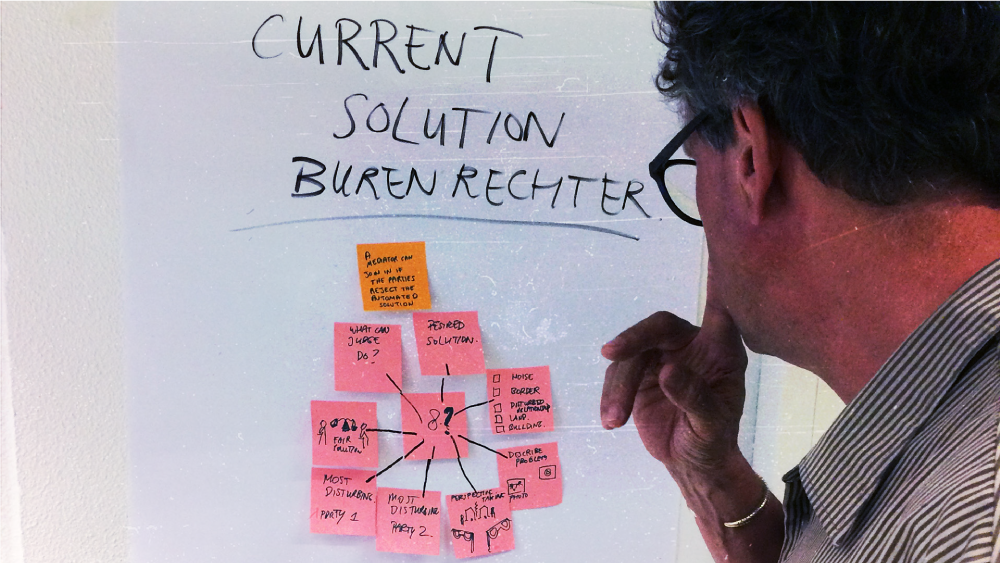 CURRENT
SOLUTION
BURENRECHTER
A
MEDIATOR CAN
JOIN IN IF
THE PARTIES
REJECT THE
AUTOMATED
SOLUTION
WHAT CAN
JUDGE
DO?
DESIRED
SOLUTION.
NOISE
BORDER
DISTURBED
RELATIONSHIP
LAND.
BUILDING.
8?
FAIR
SOLUTION
DESCRIBE
PROBLEM
PHOTO
MOST
DISTURBING.
PARTY 1
MOST
DISTURBING
PARTY 2.
PERSPECTIVE TAKING